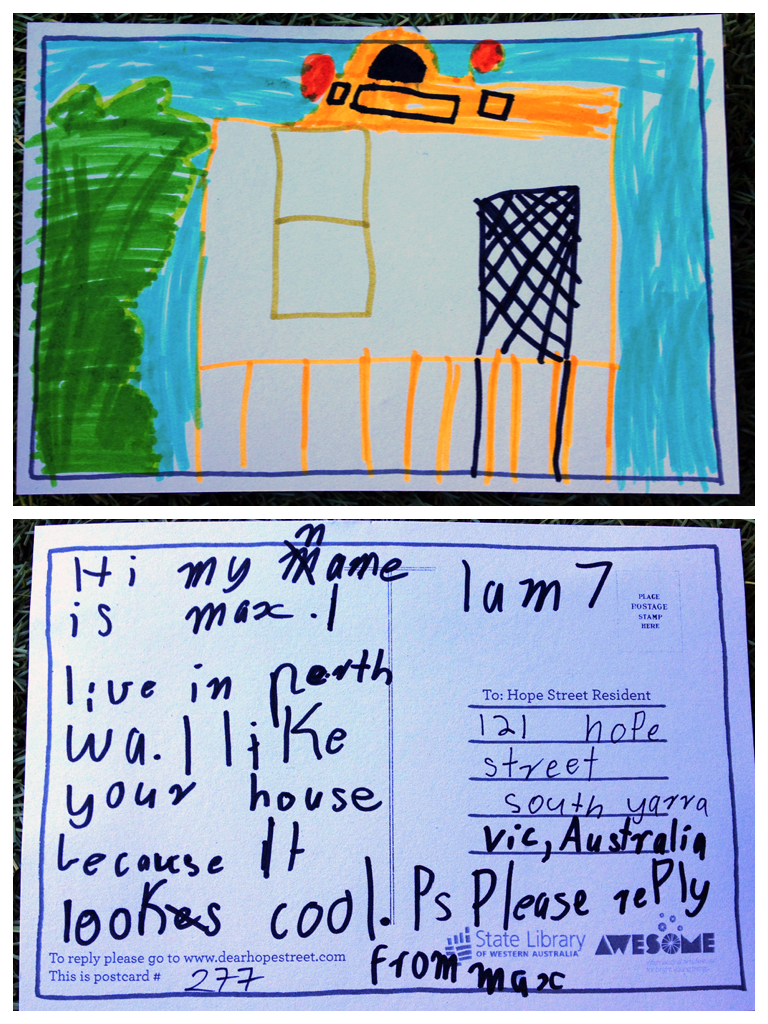 Hi my name
is max. I
live in perth
wa. I like
your house
because It
looks cool.
I am 7
PLACE
POSTAGE
STAMP
HERE
To: Hope Street Resident
121 hope
street
south yarra
Vic, Australia
Ps Please reply
from max
To reply please go to www.dearhopestreet.com
This is postcard # 277
State Library
OF WESTERN AUSTRALIA
AWESOME